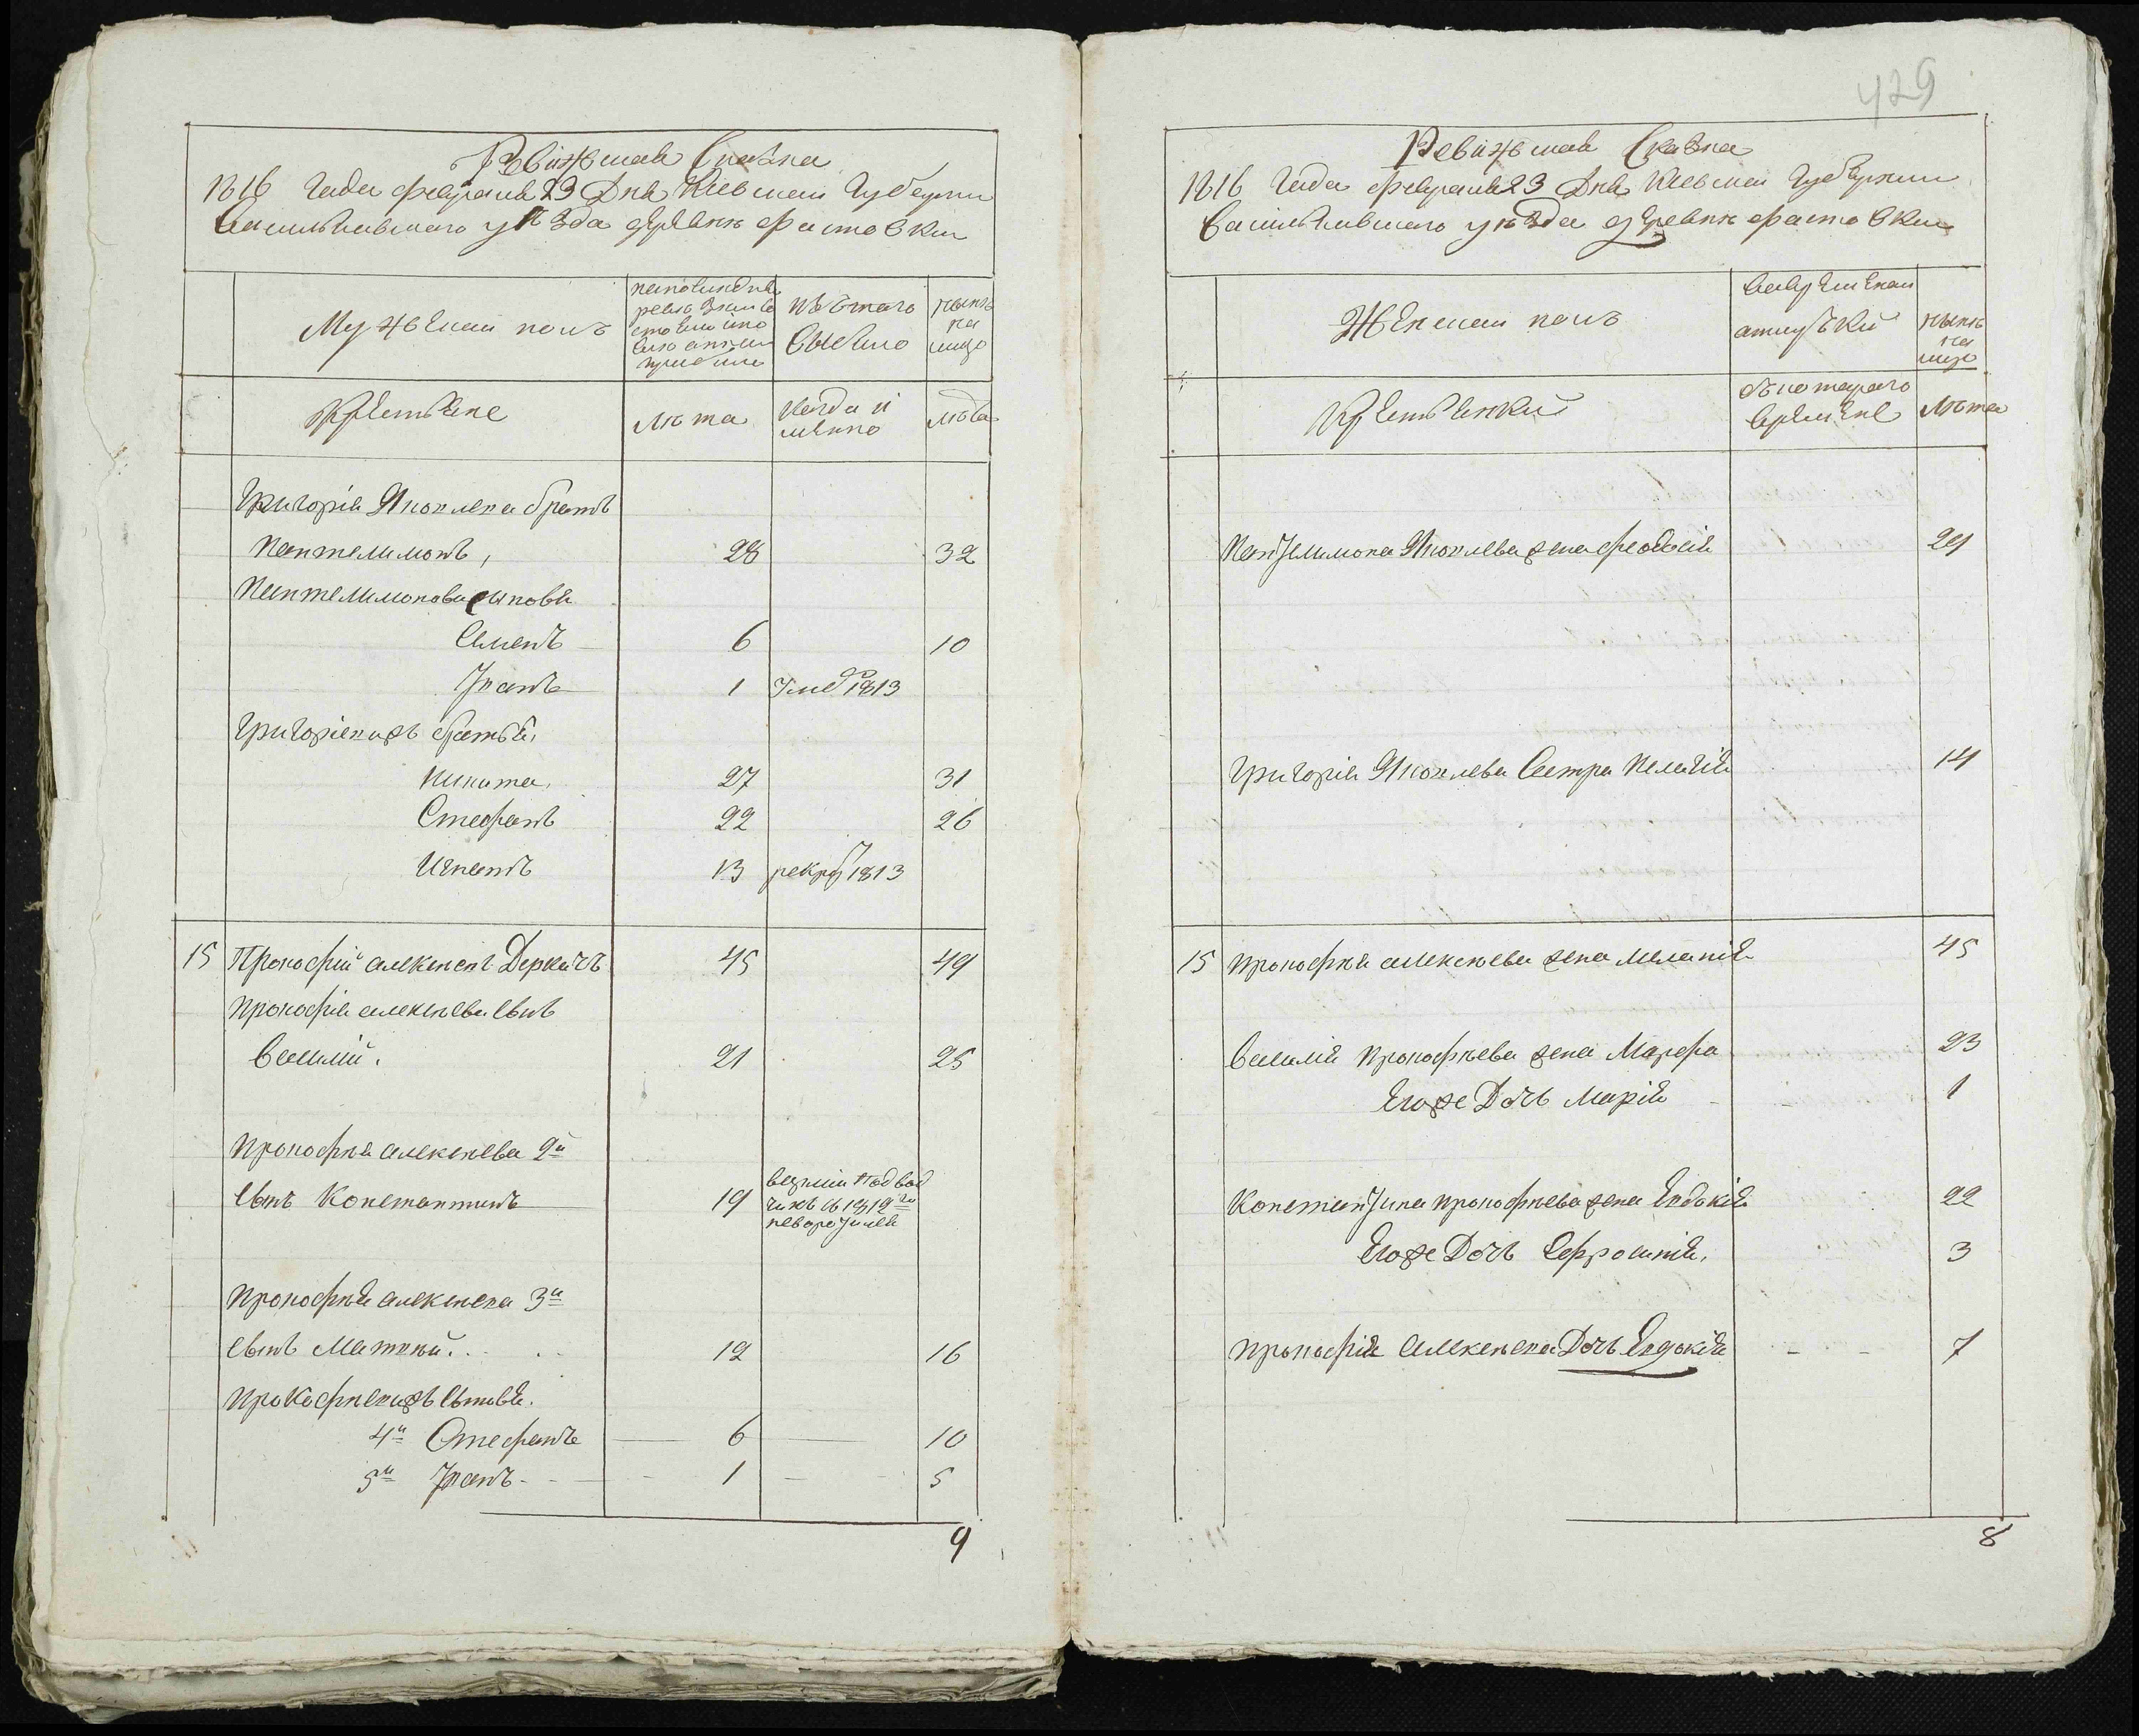 Ревижская Сказка
1816 Года февраля 23 Дня Киевской Губернии
Васильковского уѣзда деревнѣ Фастовки
Мужеской полъ
по последней
ревизіи
состояло и по
прибыло
изъ того
выбыло
нынѣ
на
лицо
Крестьяне
лѣта
когда и
менно
лѣта
Григорія Яковлева братъ
Пантелимонъ, 28 32
Пантелимонови сыновя
Семенъ 6 10
Иванъ 1 умеръ 1813
Григоріевихъ братья,
Никита, 27 31
Стефанъ 22 26
Игнатъ 13 рекру 1813
15 Прокофий Алексеевъ Деркачъ 45 49
Прокофія Алексѣева сынъ
Василий. 21 25
Прокофія Алексѣева 2й
сынъ Константинъ 19
взятий подвод
чикъ въ 1812го
невозратился
Прокофія Алексѣева 3й
сынъ Матвѣй. 12 16
Прокофиевихъ сыновя.
4й Стефанъ 6 10
5й Иванъ 1 5
9
429
Ревижская Сказка
1816 Года февраля 23 Дня Киевской Губернии
Васильковского уѣзда деревнѣ Фастовки
Женской полъ
во временной
отлучки
нынѣ
на
лицо
Крестьянки
съ которого
времене
Лѣта
Пантелимона Яковлева жена Феодосия 29
Григорія Яковлева Сестра Пелагія 14
15 Прокофия Алексѣева жена Меланія 45
Василія Прокофѣева жена Марфа 23
Егоже Дочь Марія 1
Константина Прокофѣева жена Евдокія 22
Егоже Дочь Ефросинія, 3
Прокофія Алексѣева Дочь Евдокія 7
8